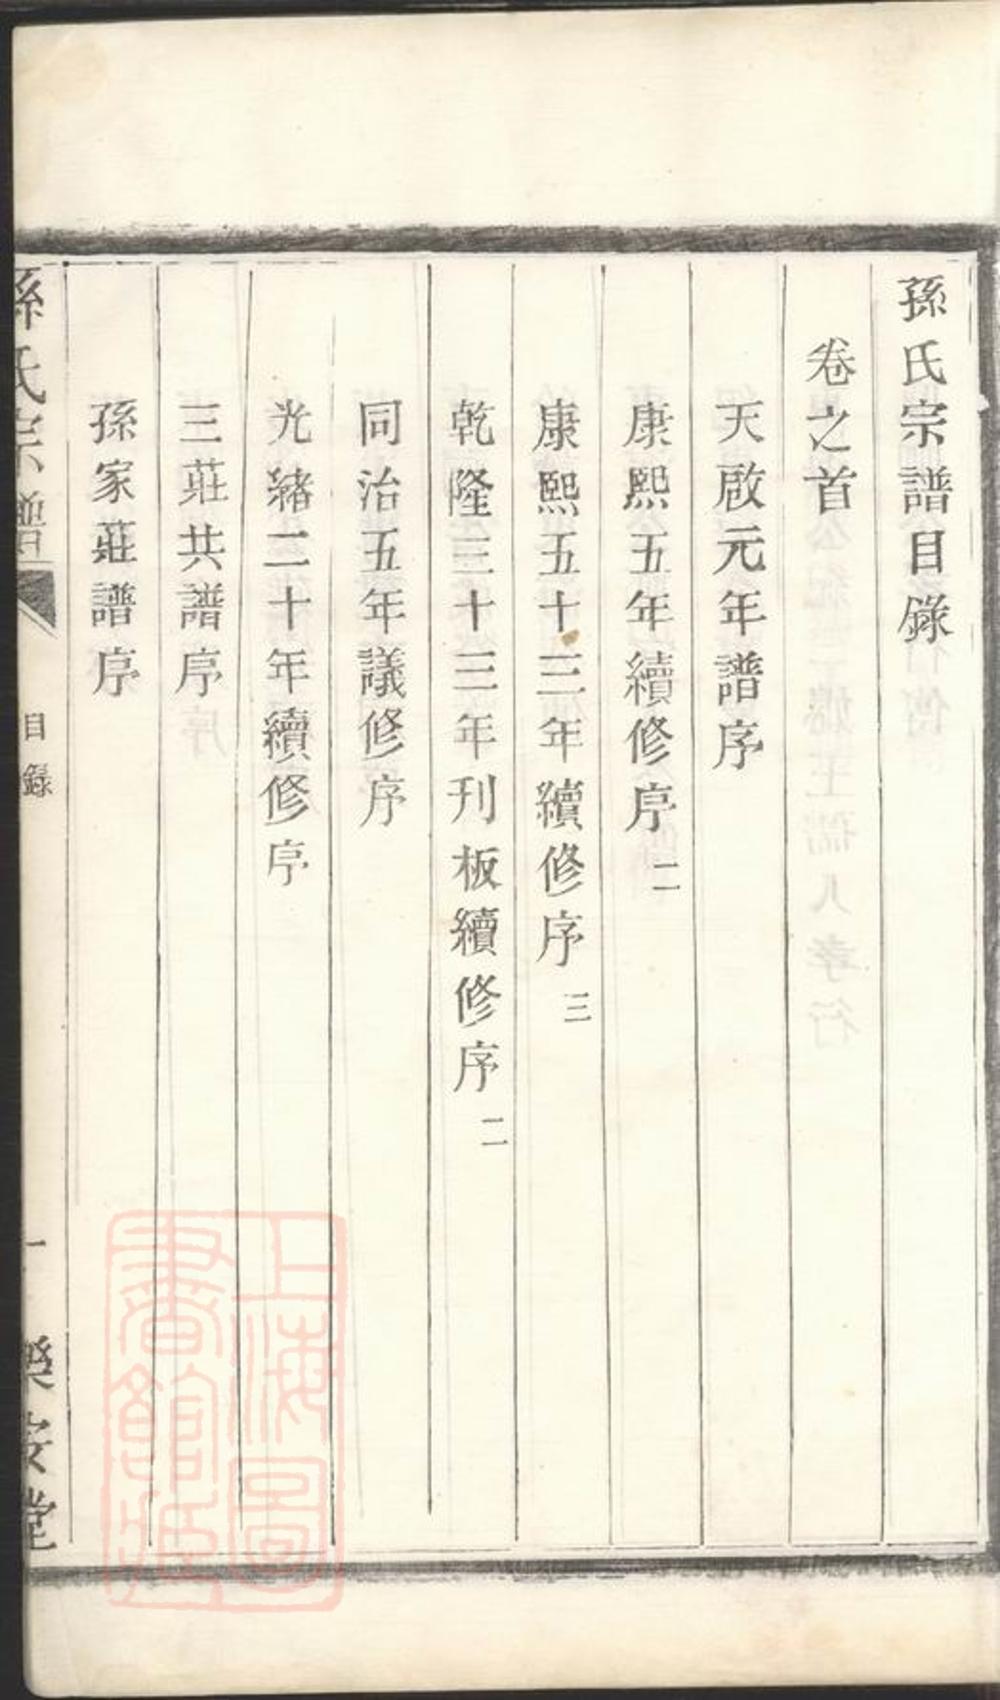 孫氏宗譜目錄
卷之首
天啟元年譜序
康熙五年續修序 二
康熙五十三年續修序 三
乾隆三十三年刊板續修序 二
同治五年議修序
光緒二十年續修序
三莊共譜序
孫家莊譜序
孫氏宗譜
目錄
一
樂安堂
上海圖書館藏